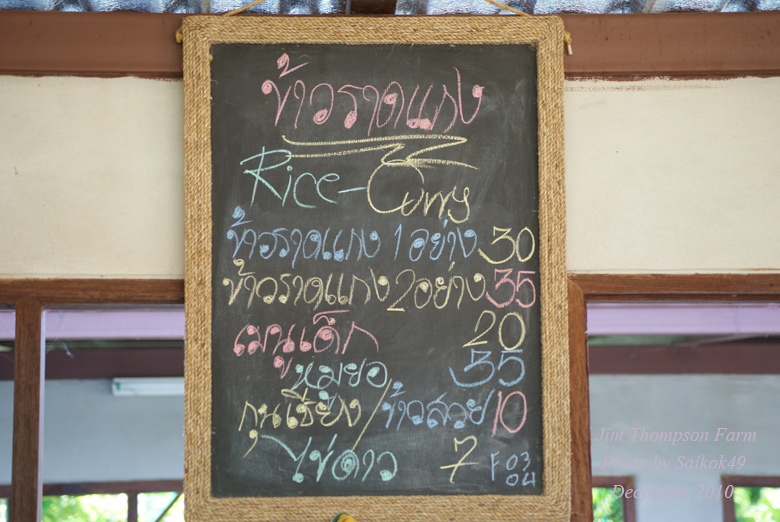 ข้าวราดแกง
Rice-Curry
ข้าวราดแกง 1 อย่าง 30
ข้าวราดแกง 2 อย่าง 35
เมนูเด็ก 20
หมูยอ 35
กุนเชียง/ข้าวสวย 10
ไข่ดาว 7 F 03
04
Jim Thompson Farm
Photo by Saikok49
December 2010